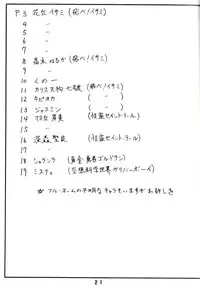 P 3 花丘イサミ (飛べ!イサミ)
4 〃
5 〃
6 〃
7 〃
8 高木はるか (飛べ!イサミ)
9 〃
10 くの一
11 カラス天狗七号 (飛べ!イサミ)
12 タピオカ ( 〃 )
13 ジャスミン ( 〃 )
14 羽丘芽美 (怪盗セイント・テール)
15 〃
16 深森聖良 (怪盗セイント・テール)
17 〃
18 シャランラ (黄金勇者ゴルドラン)
19 ミスティ (空想科学世界ガリバーボーイ)
※フル・ネームの不明なキャラもいますがお許しを
21